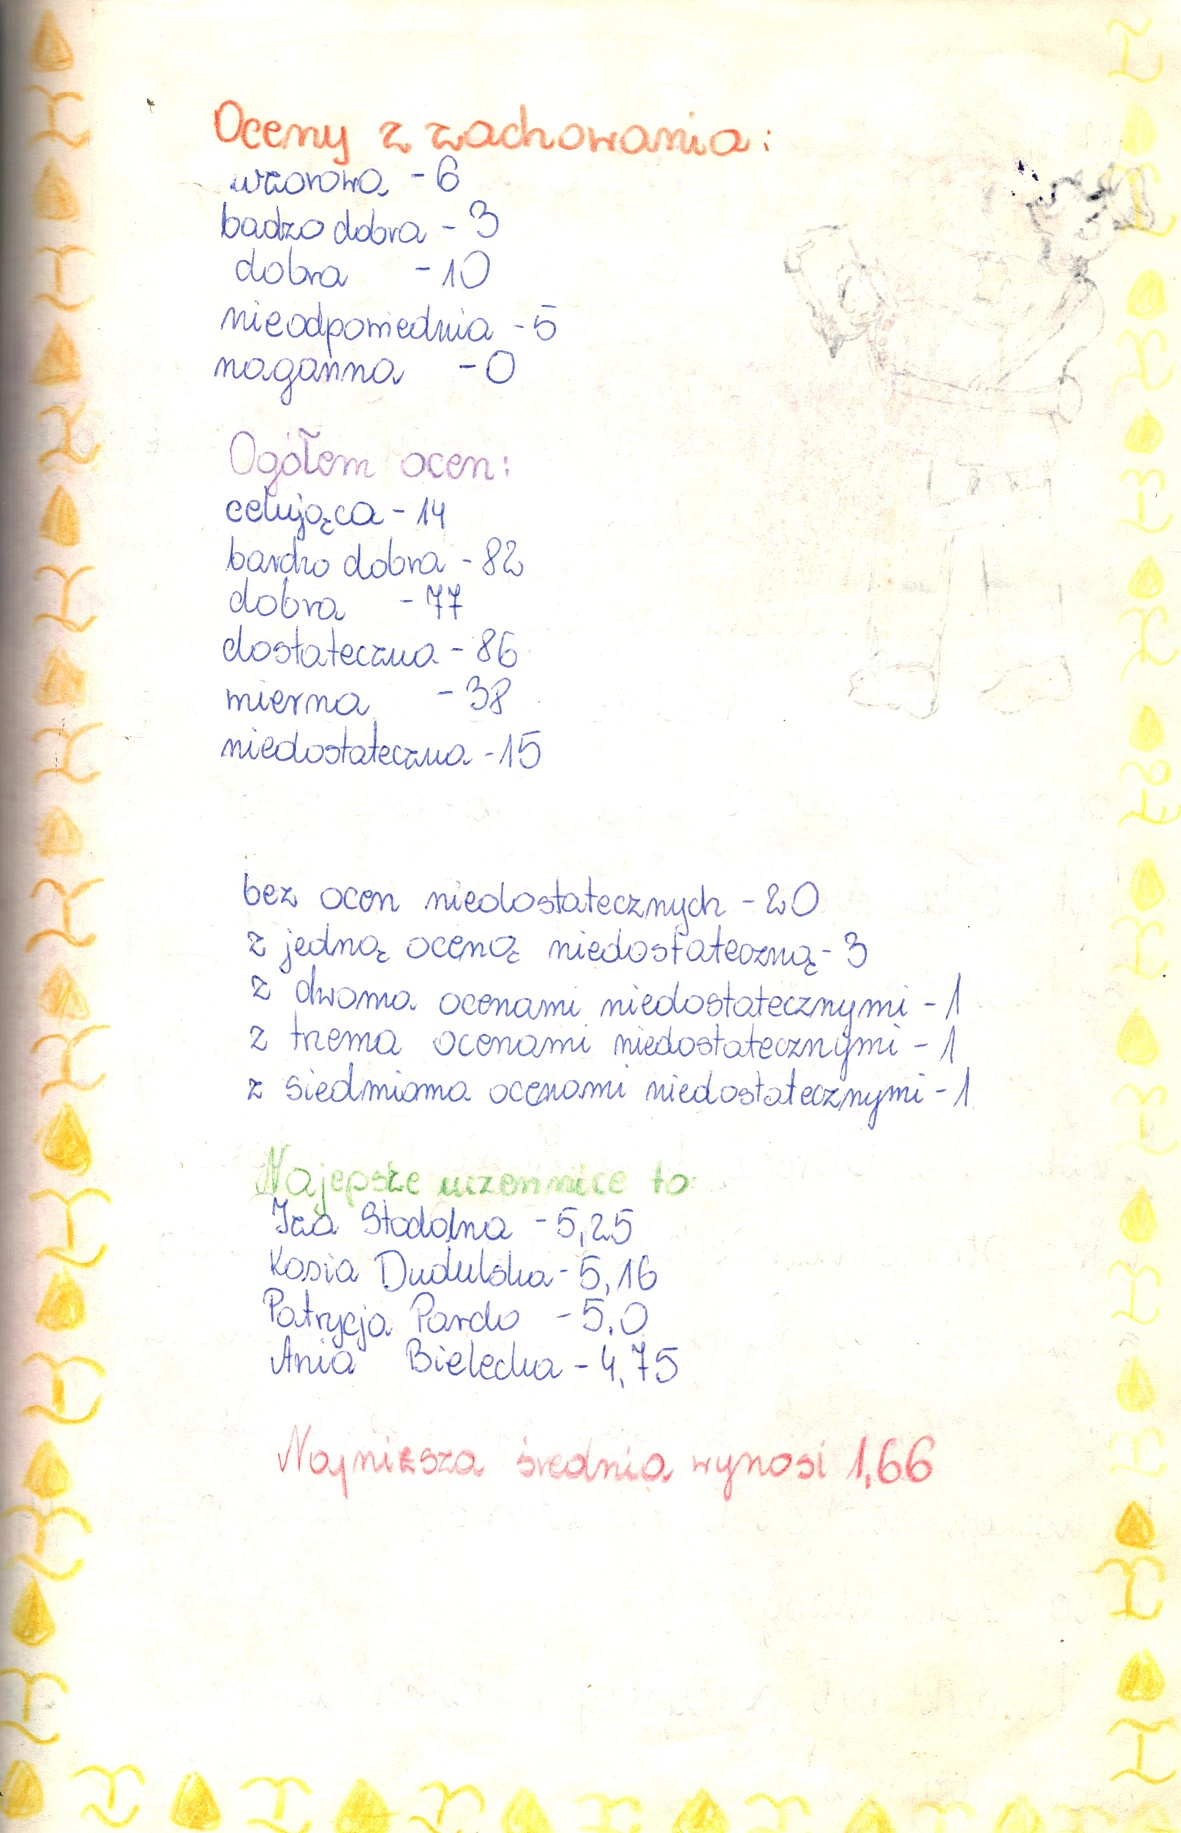 Oceny z zachowania:
wzorowa - 6
badzo dobra - 3
dobra - 10
nieodpowiednia - 5
naganna - 0
Ogółem ocen:
celująca - 14
bardzo dobra - 82
dobra - 77
dostateczna - 86
mierna - 38
niedostateczna - 15
bez ocen niedostatecznych - 20
z jedną oceną niedostateczną - 3
z dwoma ocenami niedostatecznymi - 1
z trzema ocenami niedostatecznymi - 1
z siedmioma ocenami niedostatecznymi - 1
Najepsze uczennice to:
Iza Stodolna - 5,25
Kasia Dudulska - 5,16
Patrycja Pardo - 5,0
Ania Bielecka - 4,75
Najniższa średnia wynosi 1,66